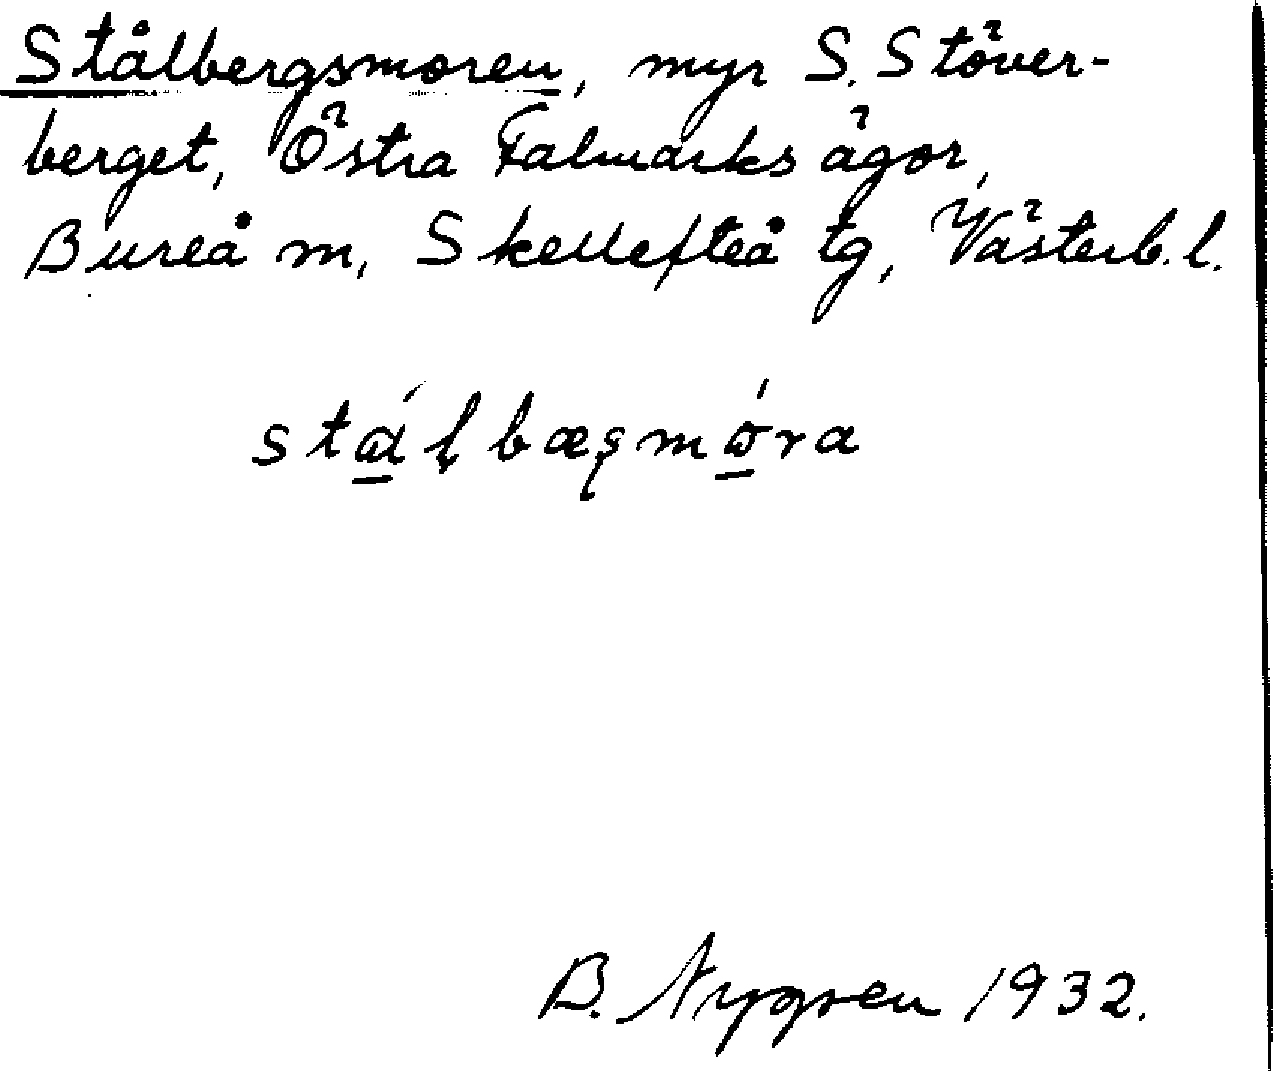 Stålbergsmoren, myr S. Stöver-
berget, Östra Falmarks ägor,
Bureå m, Skellefteå tg, Västerb. l.
B. Nygren 1932.